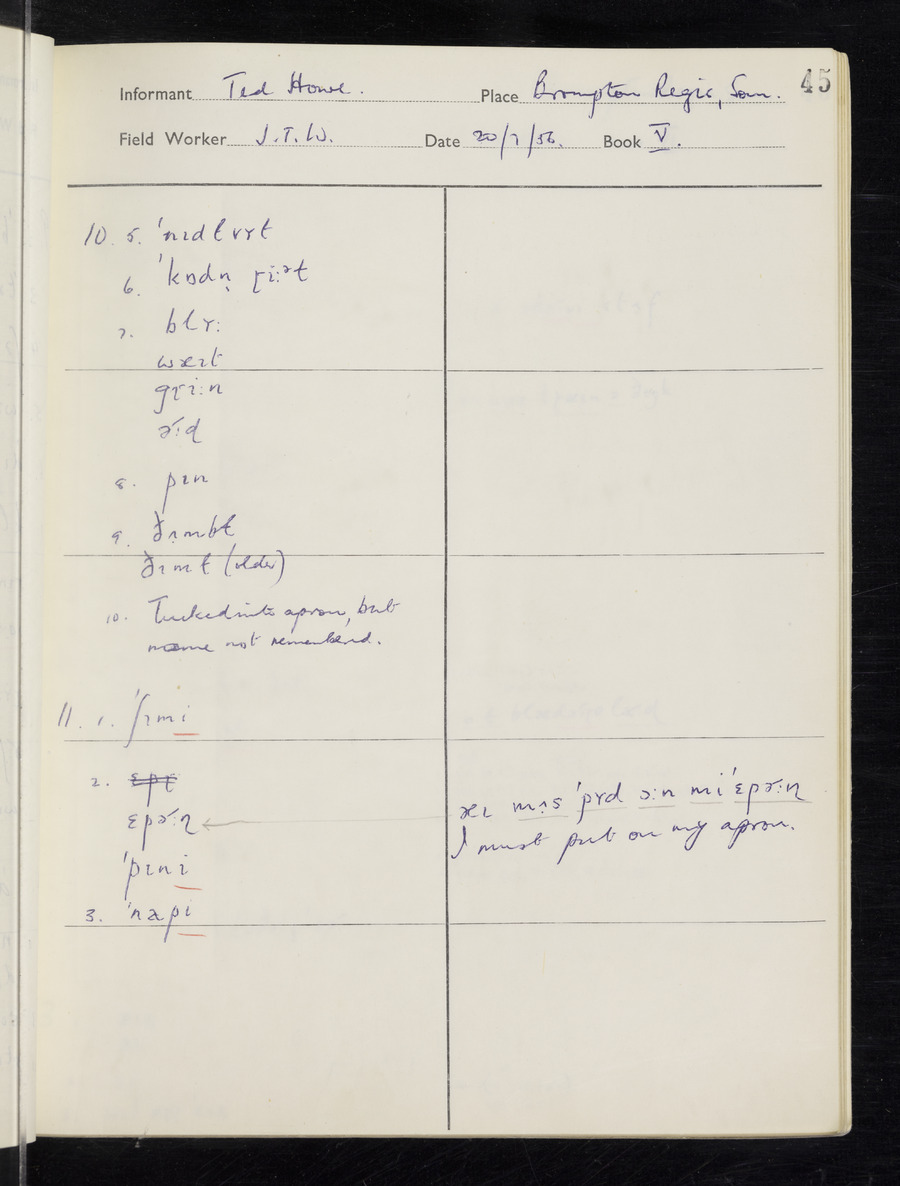 45
Informant Ted Howe. Place Brompton Regis, Som.
Field Worker J.T.W. Date 20/7/56. Book V.
10. 5. ˈnɪdɫ vɤɫ
6. ˈkɒdn̩ ɽiːᵊɫ
7. blɤː
wæɪt
gɽiːn
ɚːd
8. pɪn
9.
(older)
10. Tucked into apron, but
name not remembered.
11. 1. ˈʃɪmi
2.
ɛpɚːɳ
ˈpɪni
3. ˈnæpi
æɪ mɪs ˈpɤd ɔːn mi ˈɛpɚːɳ
I must put on my apron.